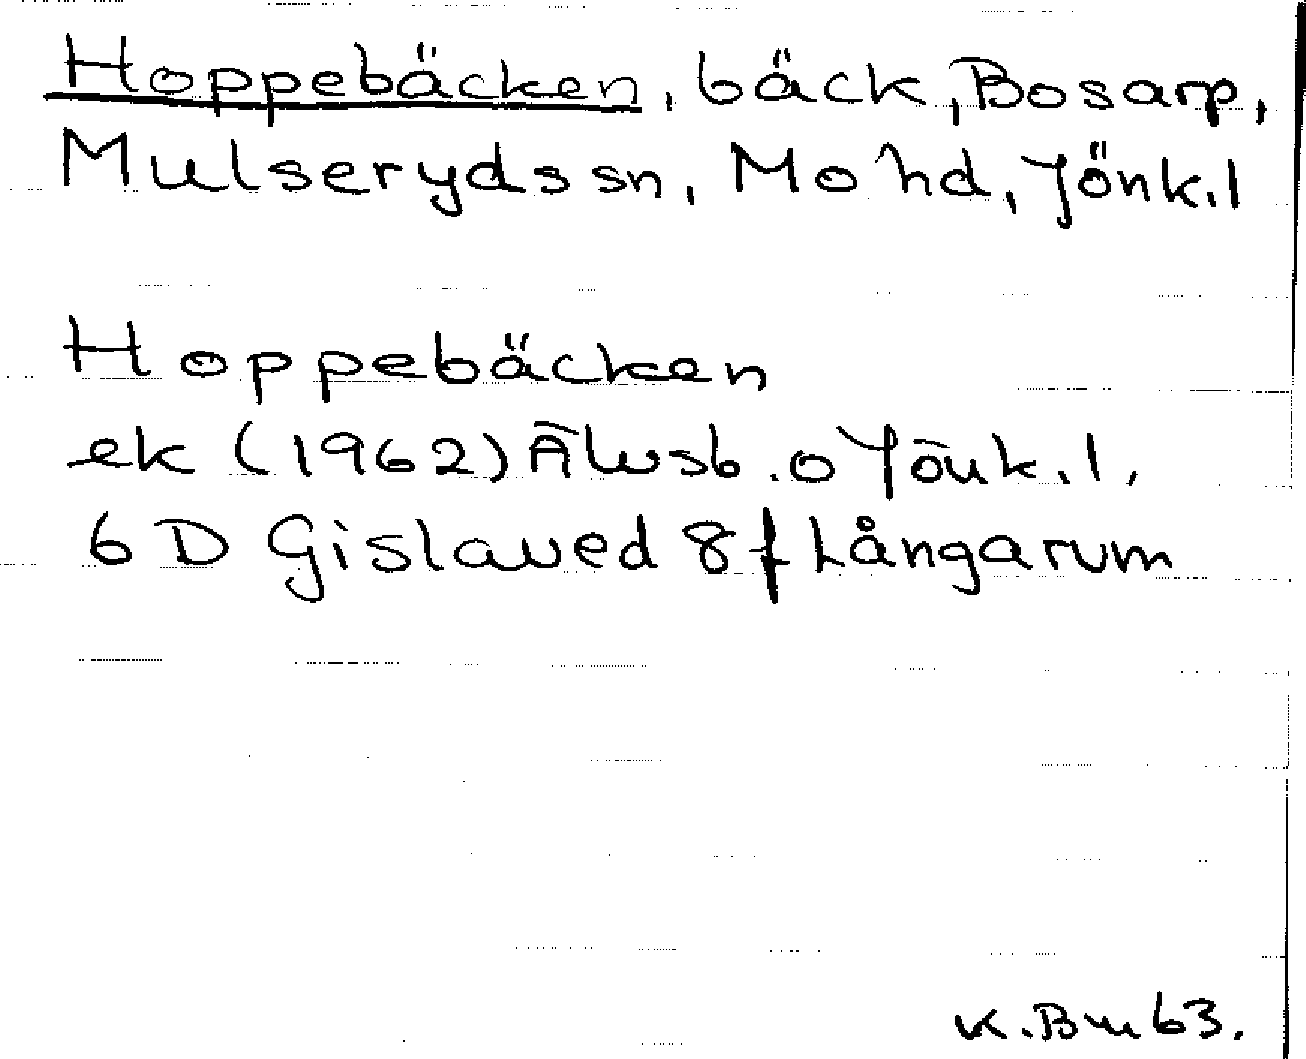 Hoppebäcken, bäck, Bosarp,
Mulserydssn, Mo hd, Jönk.l
Hoppebäcken
ek (1962) Älvsb. o Jönk.l,
6 D Gislaved 8 f Långarum
K.Bm 63.